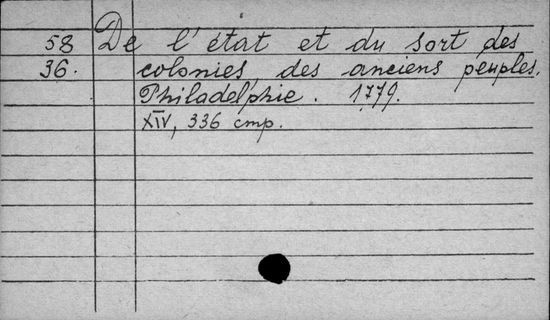 58 De l'état et du sort des
36. colonies, des anciens peuples.
Philadelphie. 1779.
XIV, 336 стр.